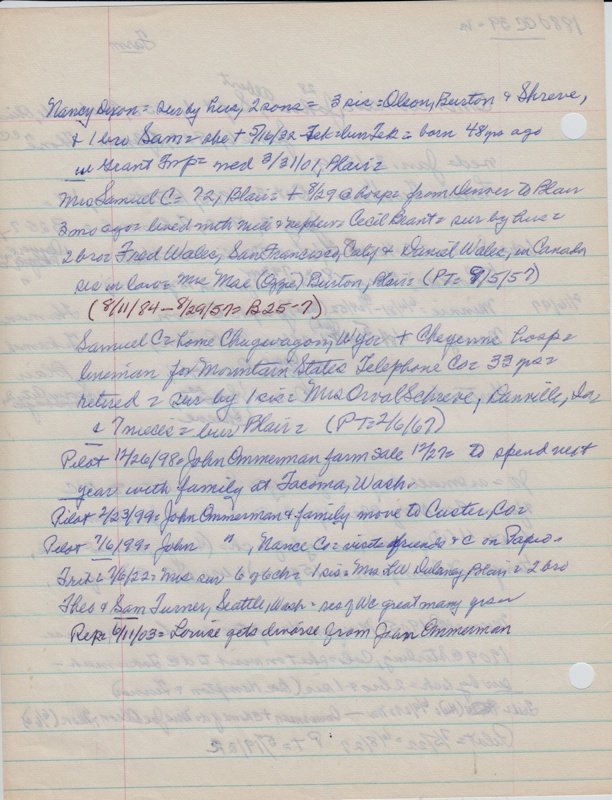 Nancy Dixon = sur by hus, 2 sons = 3 sis = Olson, Burton & Shreve,
& 1 bro Sam = she + 5/16/32 = bur = born 48 yrs ago
in Grant Imp = med 3/31/01, Blair =
Mrs Samuel C = 72, Blair = + 8/29 @ hosp = from Denver to Blair
3 mo ago = lived with niece & nephew = Cecil Grant = sur by hus =
2 bro = Fred Wales, San Francisco, Calif & Daniel Wales, in Canada
sis in law = Mrs Mae (Ozzie) Burton, Blair = (PT = 9/5/57)
(8/11/84 - 8/29/57 = B25-7)
Samuel C = home Chugwagon, Wyo = + Cheyenne hosp =
lineman for Mountain States Telephone Co = 33 yrs =
retired = sur by 1 sis = Mrs Orval Schreve, Danville, Ia
& 7 nieces = bur Blair = (PT = 2/6/67)
Pilot 12/26/98 = John Ommerman farm sale 12/27 = to spend next
year with family at Tacoma, Wash.
Pilot 2/23/99 = John Ommerman & family move to Custer Co =
Pilot 7/6/99 = John " , Nance Co = visits friends &c on Papio =
7/6/22 = Mrs sur 6 of 6 ch = 1 sis = Mrs LW Dulaney, Blair = 2 bro
Theo & Sam Turner, Seattle, Wash = res of WC great many years
Rep = 6/11/03 = Louise gets divorse from Jean Ommerman